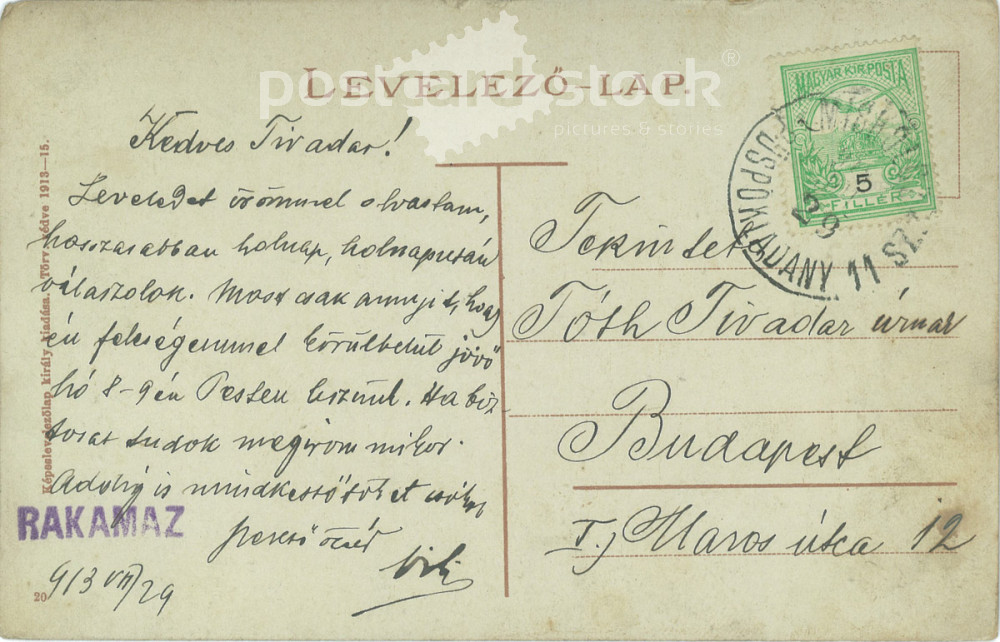 LEVELEZŐ-LAP.
postcardstock®
pictures & stories
Kedves Tivadar!
Leveledet örömmel olvastam,
hosszasabban holnap, holnapután
válaszolok. Most csak annyit, hogy
én feleségemmel körülbelül jövő
hó 8-9én Pesten leszünk. Ha biz-
tosat tudok megirom mikor.
Addig is mindkettőtöket csókol
szerető
Vili
913 VII/29
RAKAMAZ
20
Képeslevelezőlap király kiadása. Törv. védve 1913—15.
MAGYAR KIR. POSTA
5
FILLÉR
PÜSPÖKLADÁNY 11 SZ.
Tekintetes
Tóth Tivadar úrnak
Budapest
I., Maros útca 12